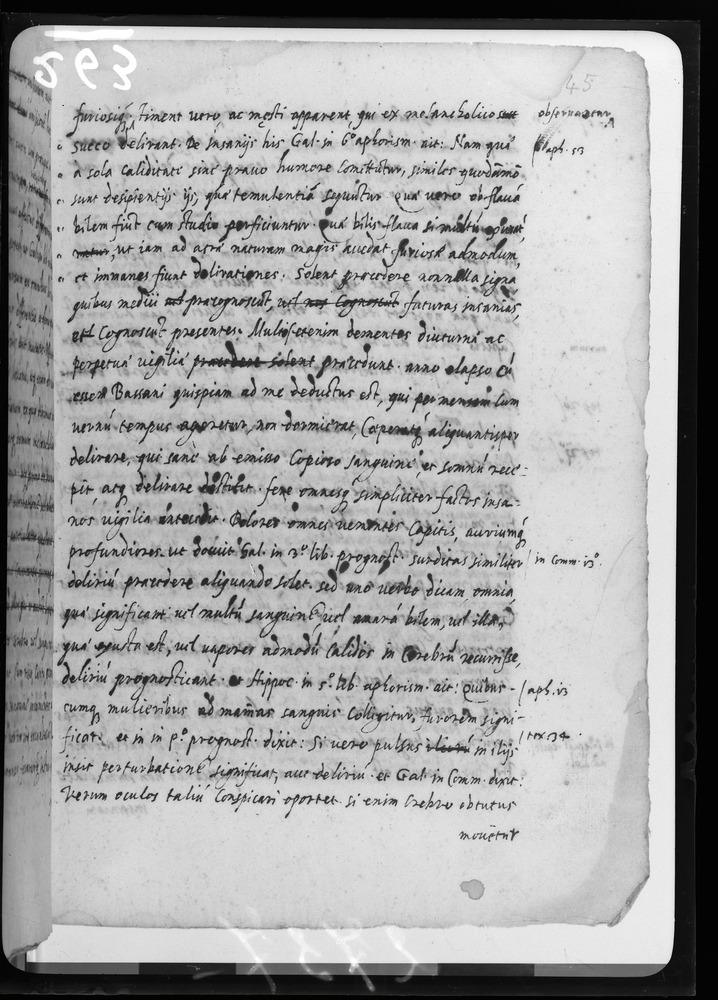 45
furiosiq; timent vero, ac męsti apparent qui ex melancholico
observantur
succo delirant. De Insanijs his Gal. in 6° aphorism. ait: Nam quę
aph. 53
a sola caliditate sine pravo humore constituūtur, similes quodāmō
sunt desipientijs ijs, quę temulentiā sequūtur quę vero ob flavā
bilem fiūt cum studio perficiuntur quā bilis flava si multū
ut iam ad atrę naturam magis accedat, furiosę admodum,
et immanes fiunt delirationes. Solent praecedere nonnulla signa
quibus medici praecognoscūt, vel futuras insanias,
et Cognoscūt presentes. Multos etenim dementes diuturna ac
perpetua vigilia praecedere solent praecedunt. anno elapso cū
essem Bassani quispiam ad me deductus est, qui per mensem cum
vernū tempus ageretur, non dormierat, Coeperatq; aliquantisper
delirare, qui sane ab emisso Copioso sanguine, et somnū rece-
pit, atq; delirare destitit. fere omnesq; simpliciter factos insa-
nos vigilia antecedit. Dolores omnes vementes Capitis, auriumq;
profundiores. ut docuit Gal. in 3° lib. prognost. surditas similiter
in Comm. i3°.
deliriū praecedere aliquando solet. sed uno verbo dicam omnia,
quę significant vel multū sanguinē vel amarā bilem, vel illā,
quę exusta est, vel vapores admodū calidos in Cerebrū recurrisse,
deliriū prognosticant. et Hippoc. in 5° lib. aphorism. ait: Quibus-
aph. i3
cumq; mulieribus ad mamas sanguis Colligitur, furorem signi-
ficat. et in in p° prognost. dixit: Si vero pulsus in ilijs
tex. 34
insit perturbationē significat, aut deliriū. et Gal. in Comm. dixit:
Verum oculos taliū Conspicari oportet. si enim Crebro obtutus
movētur